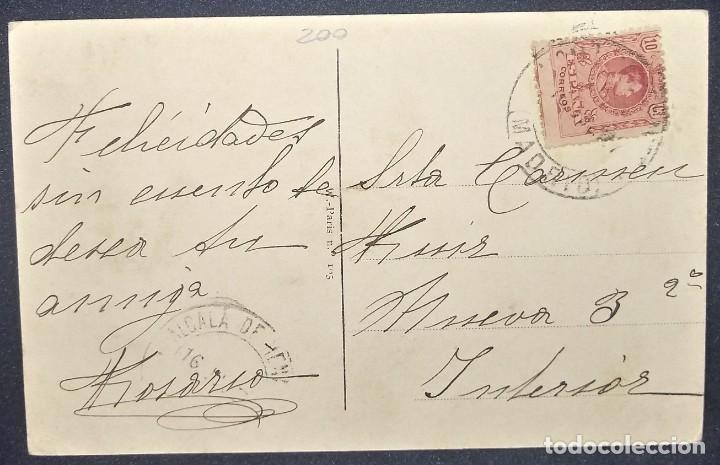 200
Felicidades
sin cuento te
desea tu
amiga
Rosario
ALCALÁ DE HEN
16
-Paris n. 105
10
CORREOS
ESPAÑA
MADRID
Srta Carmen
Ruiz
Nueva 3 2º
Interior
todocoleccion.net